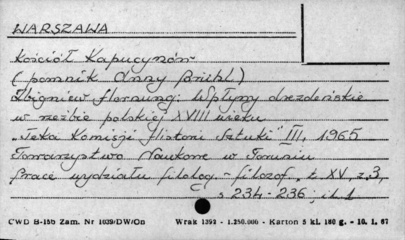 WARSZAWA
Kościół Kapucynów
(pomnik Anny Brühl)
Zbigniew Hornung: Wpływy drezdeńskie
w rzeźbie polskiej XVIII wieku
"Teka Komisji Historii Sztuki" III, 1965
Towarzystwo Naukowe w Toruniu
Prace wydziału filolog.-filozof., t. XV, z. 3,
s 234-236; il. 1
CWD B-156 Zam. Nr 1039/DW/Oa Wrak 1392 - 1.250.000 - Karton 5 kl. 180 g. - 10. 1. 67